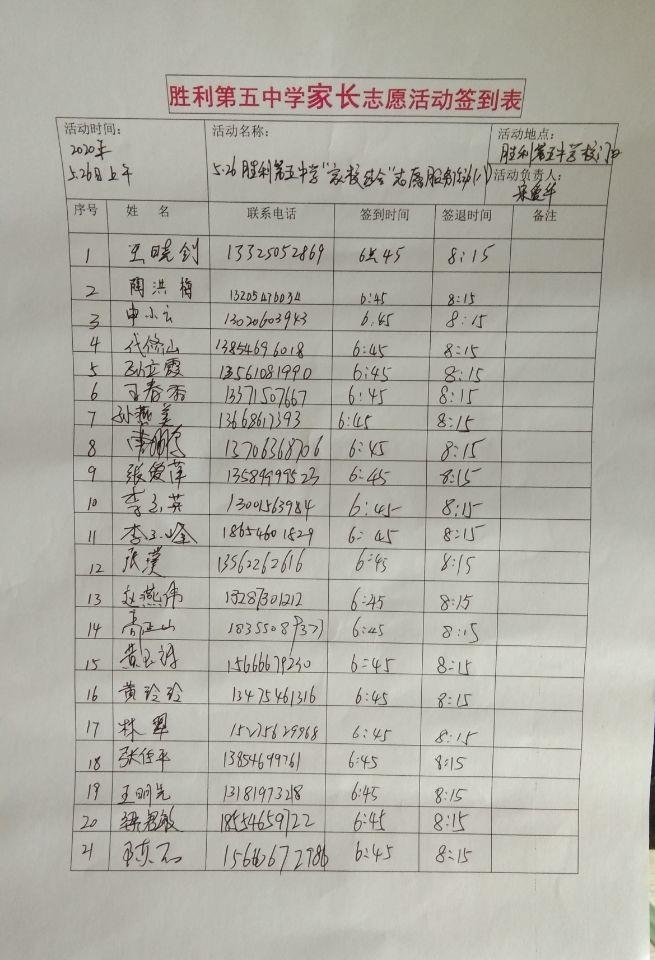 胜利第五中学家长志愿活动签到表
活动时间: 活动名称: 活动地点:
2020年 胜利第五中学校门口
5.26日上午 5.26胜利第五中学"家校结合"志愿服务活动(八) 活动负责人:
序号 姓 名 联系电话 签到时间 签退时间 备注
1 王晓剑 13325052869 6点45 8:15
2 陶洪梅 13205476034 6:45 8:15
3 申小云 13020603943 6:45 8:15
4 代修山 13854696018 6:45 8:15
5 孙立霞 13561081990 6:45 8:15
6 王春香 13371507667 6:45 8:15
7 孙燕美 13668617393 6:45 8:15
8 13706368706 6:45 8:15
9 张俊萍 13589999523 6:45 8:15
10 李玉英 13001563984 6:45 8:15
11 李玉峰 18654601829 6:45 8:15
12 张 13562262616 6:45 8:15
13 赵燕伟 13287301212 6:45 8:15
14 高正山 6:45 8:15
15 黄玉 15666679230 6:45 8:15
16 黄玲玲 13475461316 6:45 8:15
17 林翠 15275629968 6:45 8:15
18 张 平 13854699761 6:45 8:15
19 王明先 13181973218 6:45 8:15
20 敏 18554659722 6:45 8:15
21 6:45 8:15